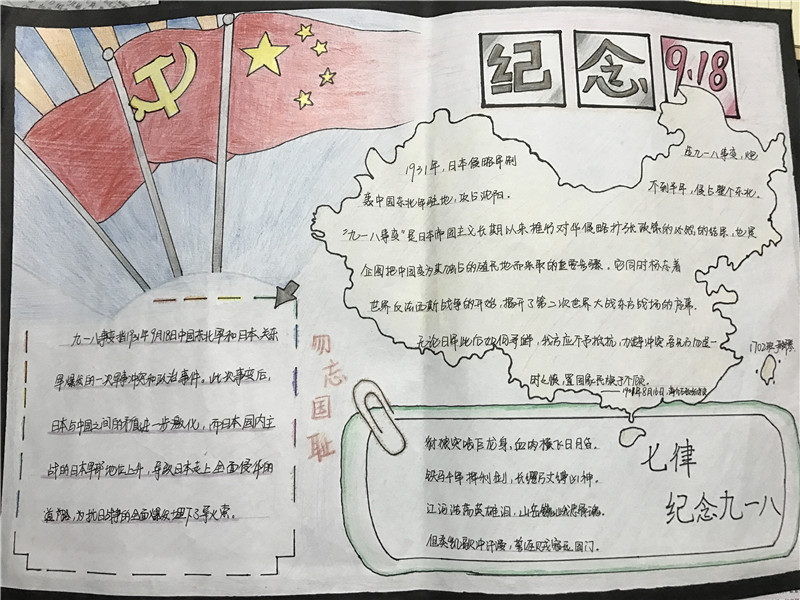 纪念 9.18
1931年,日本侵略军制
在九一八事变,炮
袭中国东北军驻地,攻占沈阳。
不到半年,侵占整个东北。
"九一八事变"是日本帝国主义长期以来推行对华侵略扩张政策的必然的结果,也是
企图把中国变为其独占的殖民地而采取的重要步骤。它同时标志着
世界反法西斯战争的开始,揭开了第二次世界大战东方战场的序幕。
无论日军此后如何寻衅,我方应不予抵抗,力避冲突。吾兄万勿逞一
时之愤,置国家民族于不顾。
1702班
九一八事变指1931年9月18日中国东北军和日本关东
军爆发的一次军事冲突和政治事件。此次事变后,
日本与中国之间的矛盾进一步激化,而日本国内主
战的日本军部地位上升,导致日本走上全面侵华的
道路,为抗日战争的全面爆发埋下了导火索。
勿忘国耻
七律
纪念九一八
豺狼突啖巨龙身,血肉横飞日月昏。
铁马千军挥利剑,长缨万丈缚
江河浩荡英雄泪,山岳
但奏凯歌冲